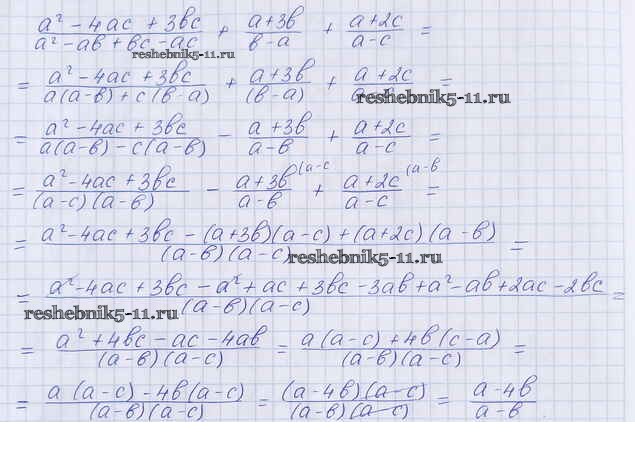 (a² - 4ac + 3bc)/(a² - ab + bc - ac) + (a+3b)/(b-a) + (a+2c)/(a-c) =
reshebnik5-11.ru
= (a² - 4ac + 3bc)/(a(a-b) + c(b-a)) + (a+3b)/(b-a) + (a+2c)/(a-c) =
reshebnik5-11.ru
= (a² - 4ac + 3bc)/(a(a-b) - c(a-b)) - (a+3b)/(a-b) + (a+2c)/(a-c) =
= (a² - 4ac + 3bc)/((a-c)(a-b)) - (a+3b)/(a-b) (a-c + (a+2c)/(a-c) (a-b =
= (a² - 4ac + 3bc - (a+3b)(a-c) + (a+2c)(a-b))/((a-b)(a-c)) =
reshebnik5-11.ru
= (a² - 4ac + 3bc - a² + ac + 3bc - 3ab + a² - ab + 2ac - 2bc)/((a-b)(a-c)) =
reshebnik5-11.ru
= (a² + 4bc - ac - 4ab)/((a-b)(a-c)) = (a(a-c) + 4b(c-a))/((a-b)(a-c)) =
= (a(a-c) - 4b(a-c))/((a-b)(a-c)) = ((a-4b)(a-c))/((a-b)(a-c)) = (a-4b)/(a-b).